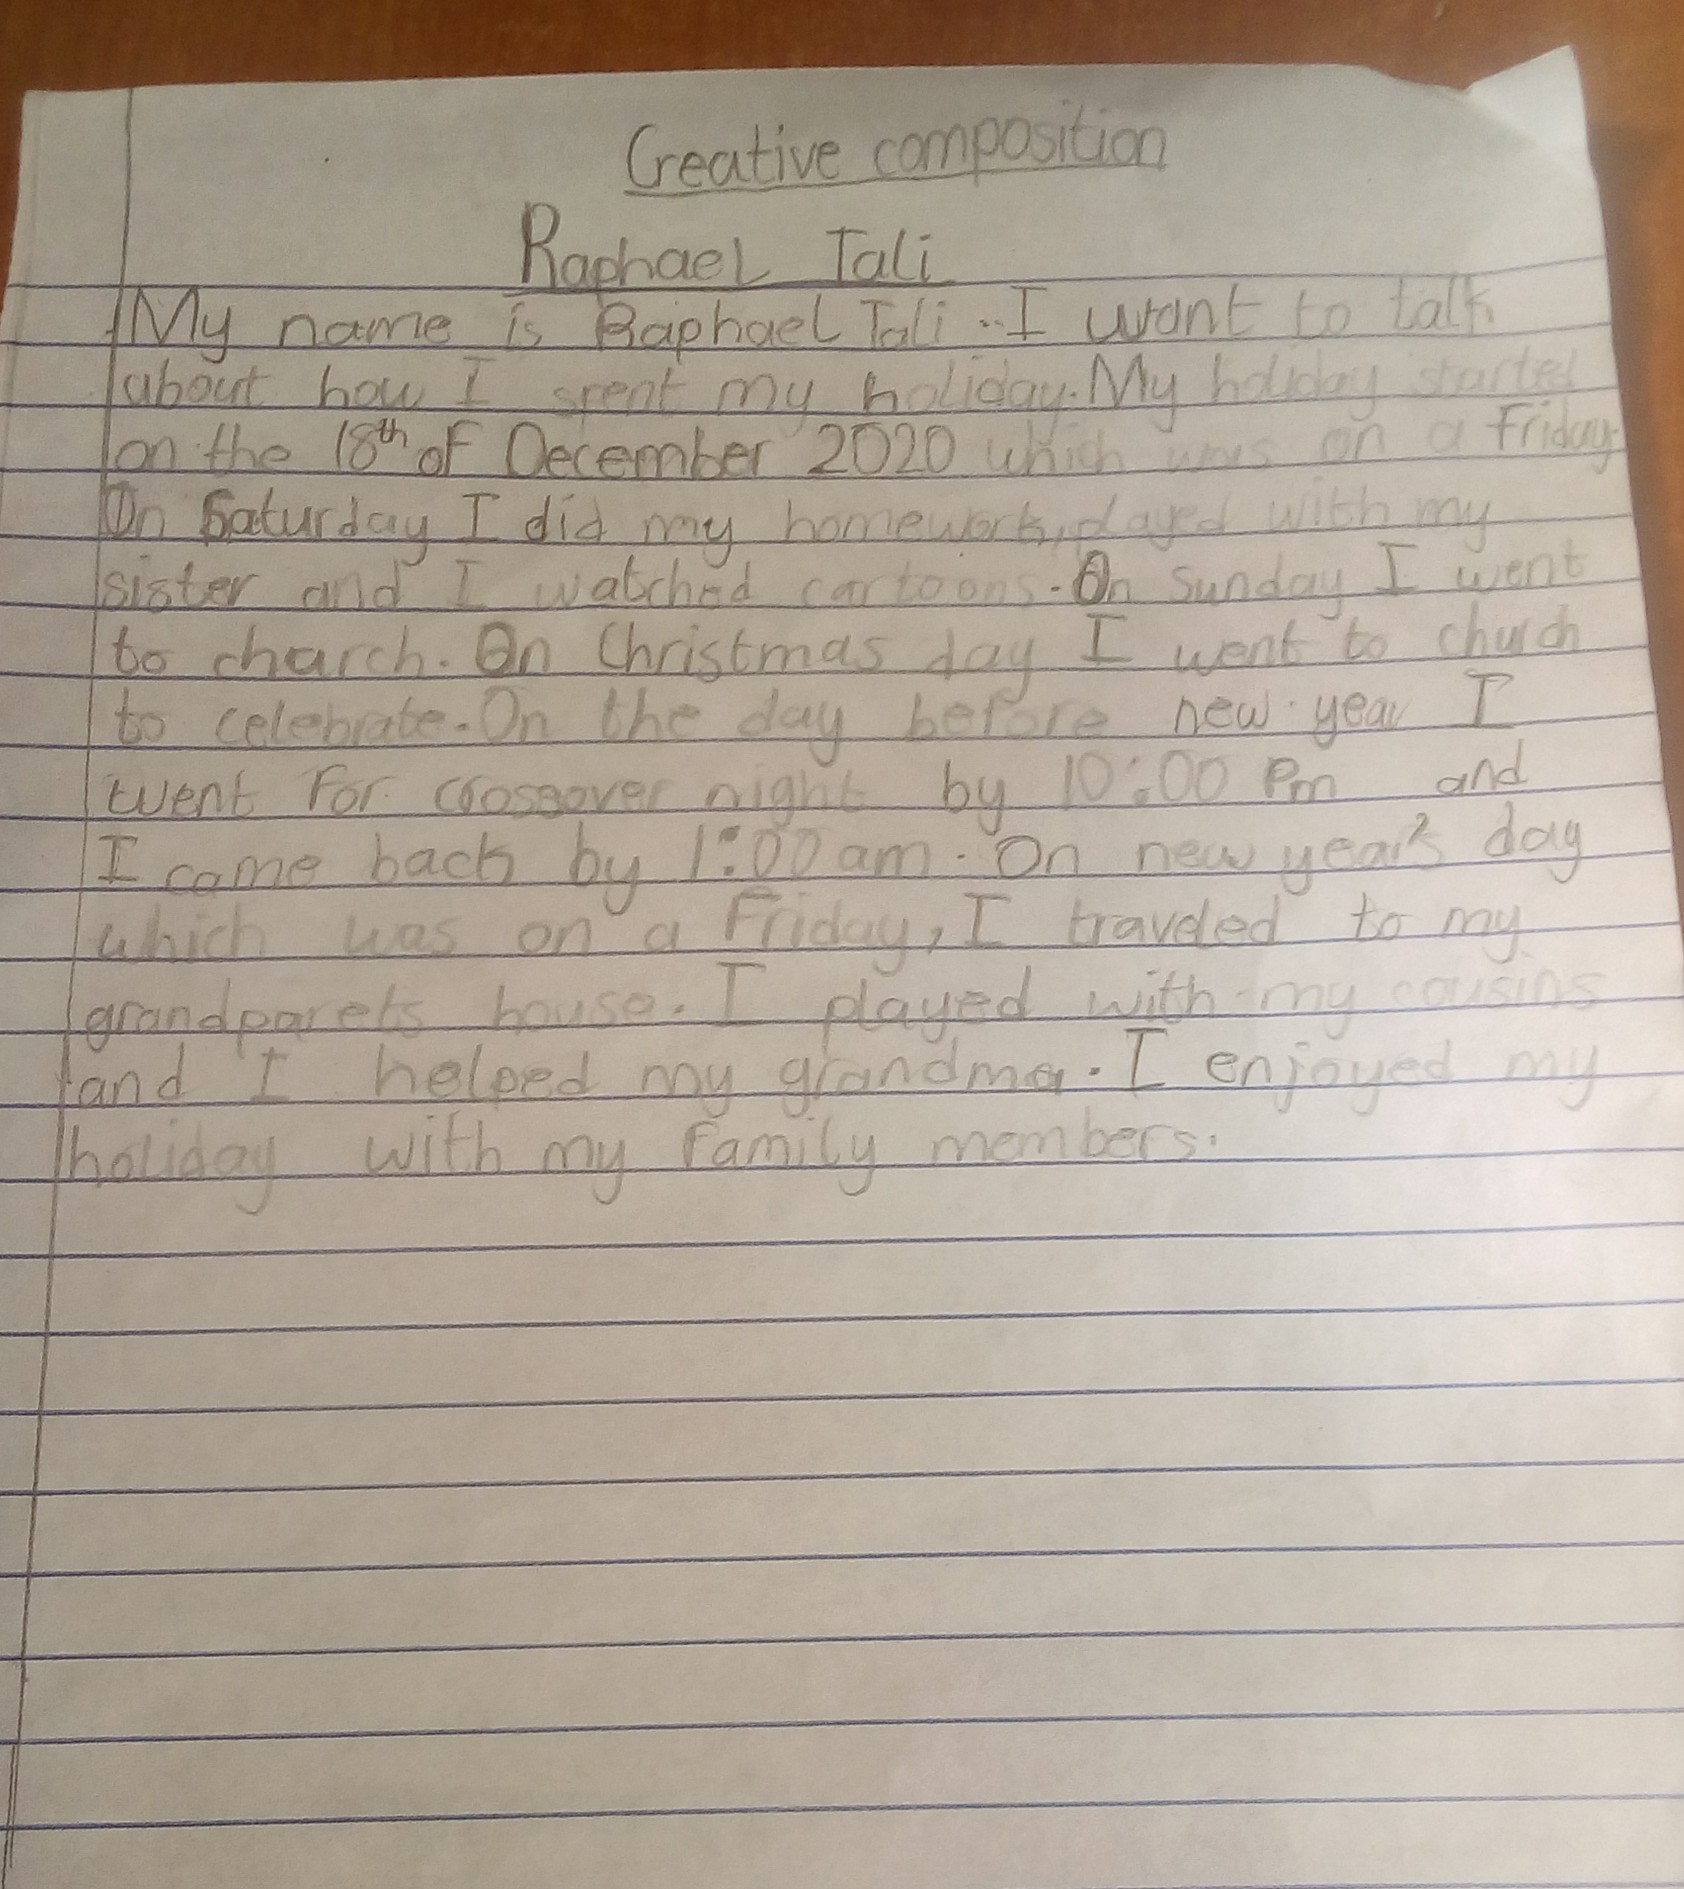 Creative composition
Raphael Tali
My name is Raphael Tali. I want to talk
about how I spent my holiday. My holiday started
on the 18th of December 2020 which was on a Friday.
On Saturday I did my homework, played with my
sister and I watched cartoons. On Sunday I went
to church. On Christmas day I went to church
to celebrate. On the day before new year I
went for crossover night by 10:00 Pm and
I came back by 1:00 am. On new year's day
which was on a Friday, I traveled to my
grandparets house. I played with my cousins
and I helped my grandma. I enjoyed my
holiday with my family members.